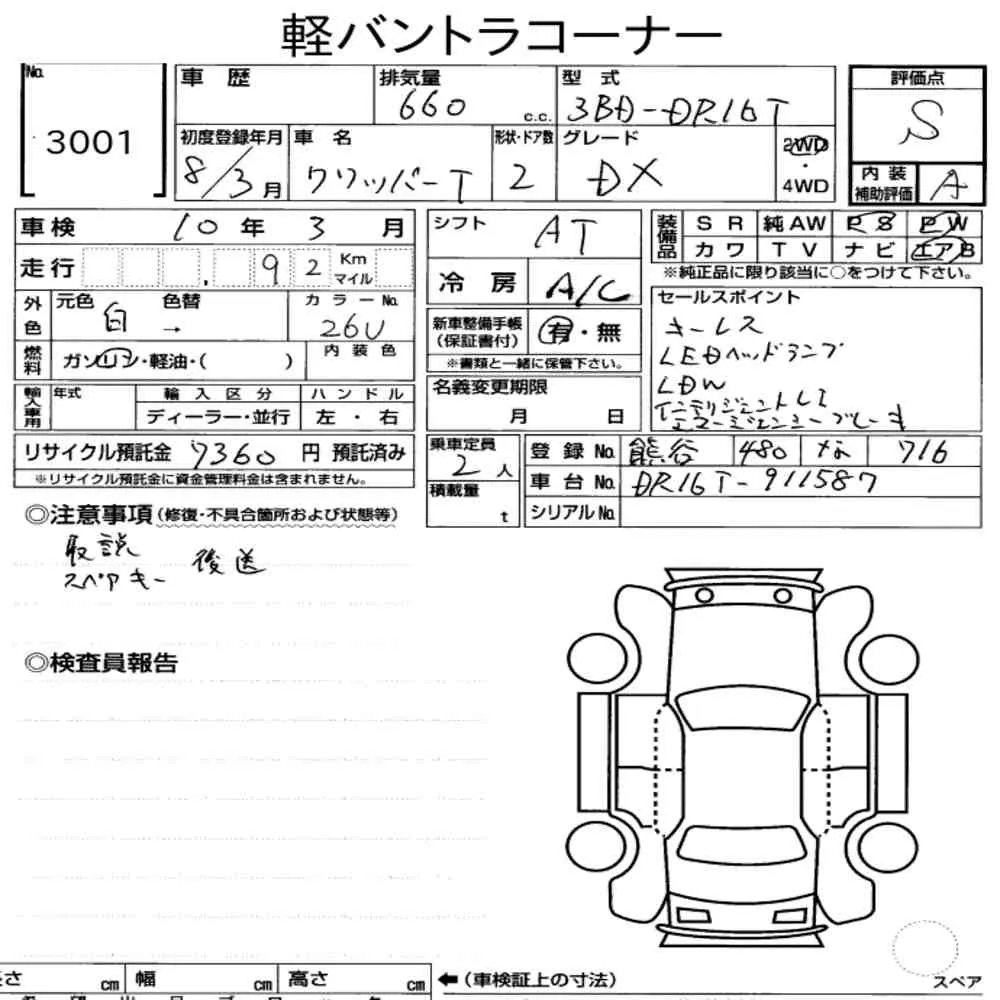 軽バントラコーナー
No. 3001
車歴
排気量 660 c.c.
型式 3BD-DR16T
評価点 S
初度登録年月 8/3月
車名 クリッパーT
形状・ドア数 2
グレード DX
2WD・4WD
内装補助評価 A
車検 10年 3月
走行 92 Km マイル
外色 元色 白 色替 → カラーNo. 26U
燃料 ガソリン・軽油・( ) 内装色
輸入車用 年式 輸入区分 ハンドル
ディーラー・並行 左・右
リサイクル預託金 9360 円 預託済み
※リサイクル預託金に資金管理料金は含まれません。
シフト AT
冷房 A/C
新車整備手帳(保証書付) 有・無
※書類と一緒に保管下さい。
名義変更期限 月 日
乗車定員 2人
積載量 t
装備品 SR 純AW PS PW
カワ TV ナビ エアB
※純正品に限り該当に○をつけて下さい。
セールスポイント
キーレス
LEDヘッドランプ
LDW
インテリジェントLI
エマージェンシーブレーキ
登録No. 熊谷 480 な 716
車台No. DR16T-911587
シリアルNo.
◎注意事項(修復・不具合箇所および状態等)
取説
スペアキー 後送
◎検査員報告
長さ cm 幅 cm 高さ cm ←(車検証上の寸法)
スペア